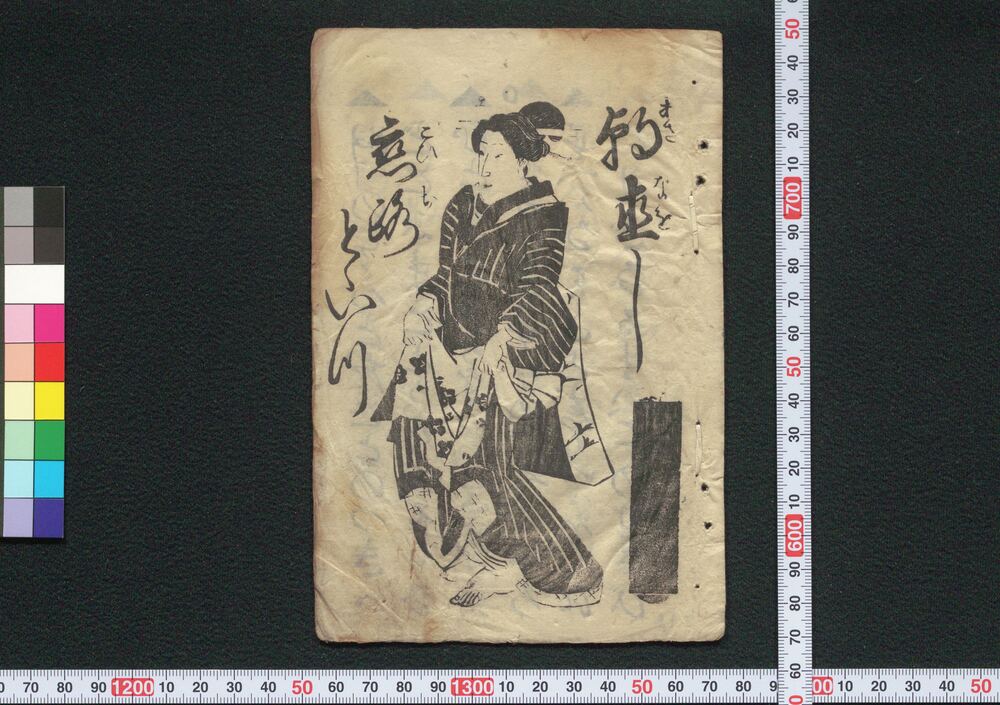 朝直し
あさなを
恋路
こひぢ
とゝいつ
50 40 30 20 10 700 90 80 70 60 50 40 30 20 10 600 90 80 70 60
70 80 90 1200 10 20 30 40 50 60 70 80 90 1300 10 20 30 40 50 60 70 80 9 00 10 20 30 40 50